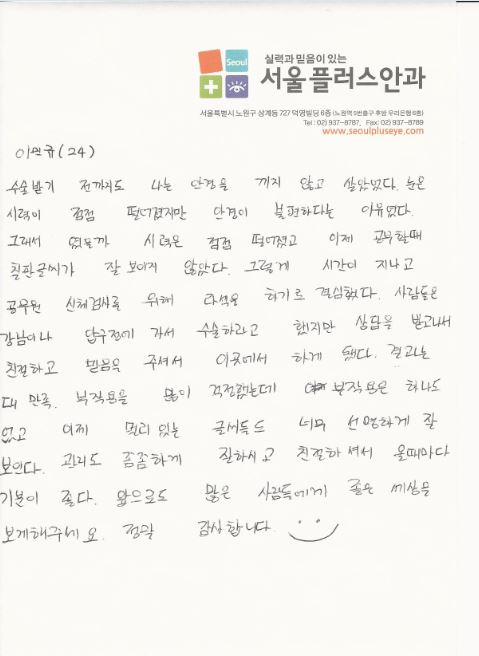 Seoul
실력과 믿음이 있는
서울플러스안과
서울특별시 노원구 상계동 727 덕영빌딩 6층 (노원역 9번출구 후방 우리은행 6층)
Tel : 02) 937-8787, Fax: 02) 937-8789
www.seoulpluseye.com
이민규 (24)
수술받기 전까지도 나는 안경을 끼지 않고 살았었다. 눈은
시력이 점점 떨어졌지만 안경이 불편하다는 이유였다.
그래서 였을까 시력은 점점 떨어졌고 이제 공부할때
칠판글씨가 잘 보이지 않았다. 그렇게 시간이 지나고
공무원 신체검사를 위해 라식을 하기로 결심했다. 사람들은
강남이나 압구정에 가서 수술하라고 했지만 상담을 받고나서
친절하고 믿음을 주셔서 이곳에서 하게 됐다. 결과는
대 만족. 부작용을 많이 걱정했는데 부작용은 하나도
없고 이제 멀리 있는 글씨들도 너무 선명하게 잘
보인다. 관리도 꼼꼼하게 잘하시고 친절하셔서 올때마다
기분이 좋다. 앞으로도 많은 사람들에게 좋은 세상을
보게해주세요. 정말 감사합니다.